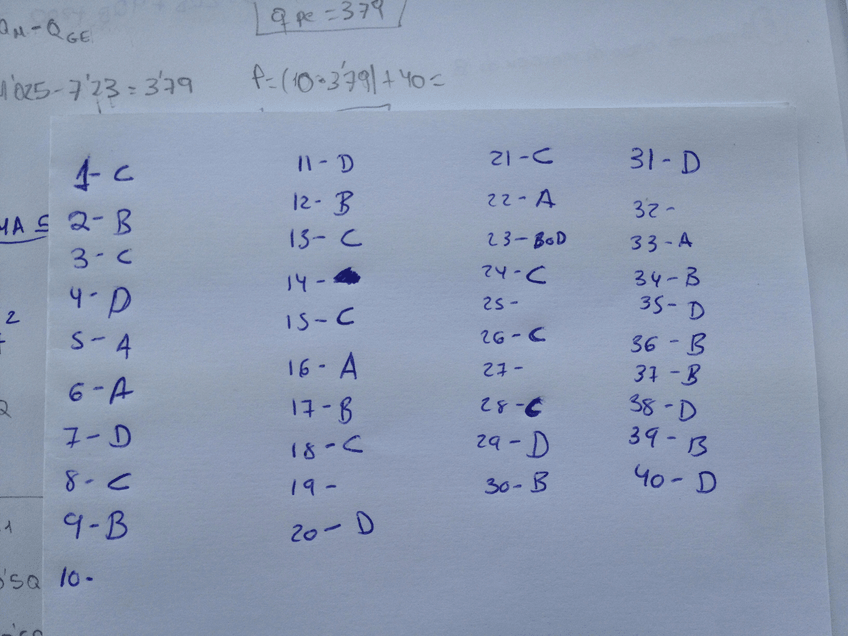 QM-QGE
qpc=379
1'025-7'23=3'79
f=(10·3'79)+40=
1-C
2-B
3-C
4-D
5-A
6-A
7-D
8-C
9-B
10-
11-D
12-B
13-C
14-
15-C
16-A
17-B
18-C
19-
20-D
21-C
22-A
23-BoD
24-C
25-
26-C
27-
28-C
29-D
30-B
31-D
32-
33-A
34-B
35-D
36-B
37-B
38-D
39-B
40-D